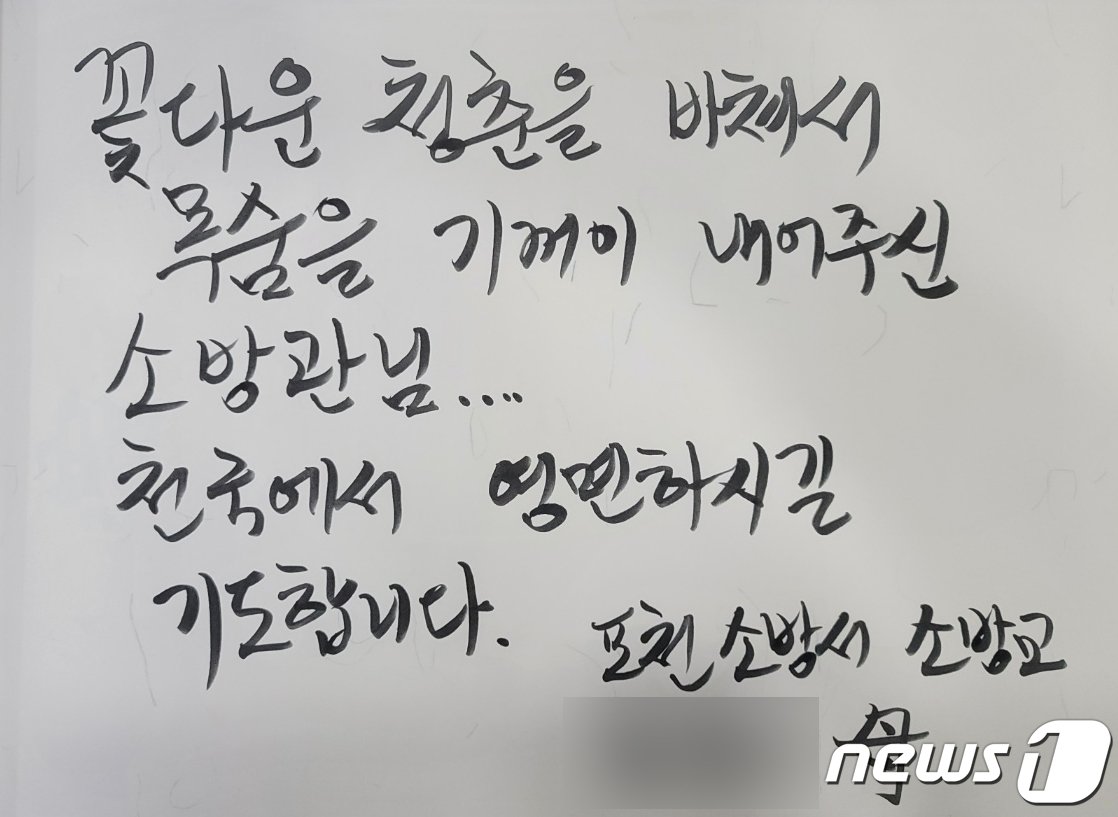 꽃다운 청춘을 바쳐서
목숨을 기꺼이 내어주신
소방관님....
천국에서 영면하시길
기도합니다.
포천소방서 소방교
母
news1